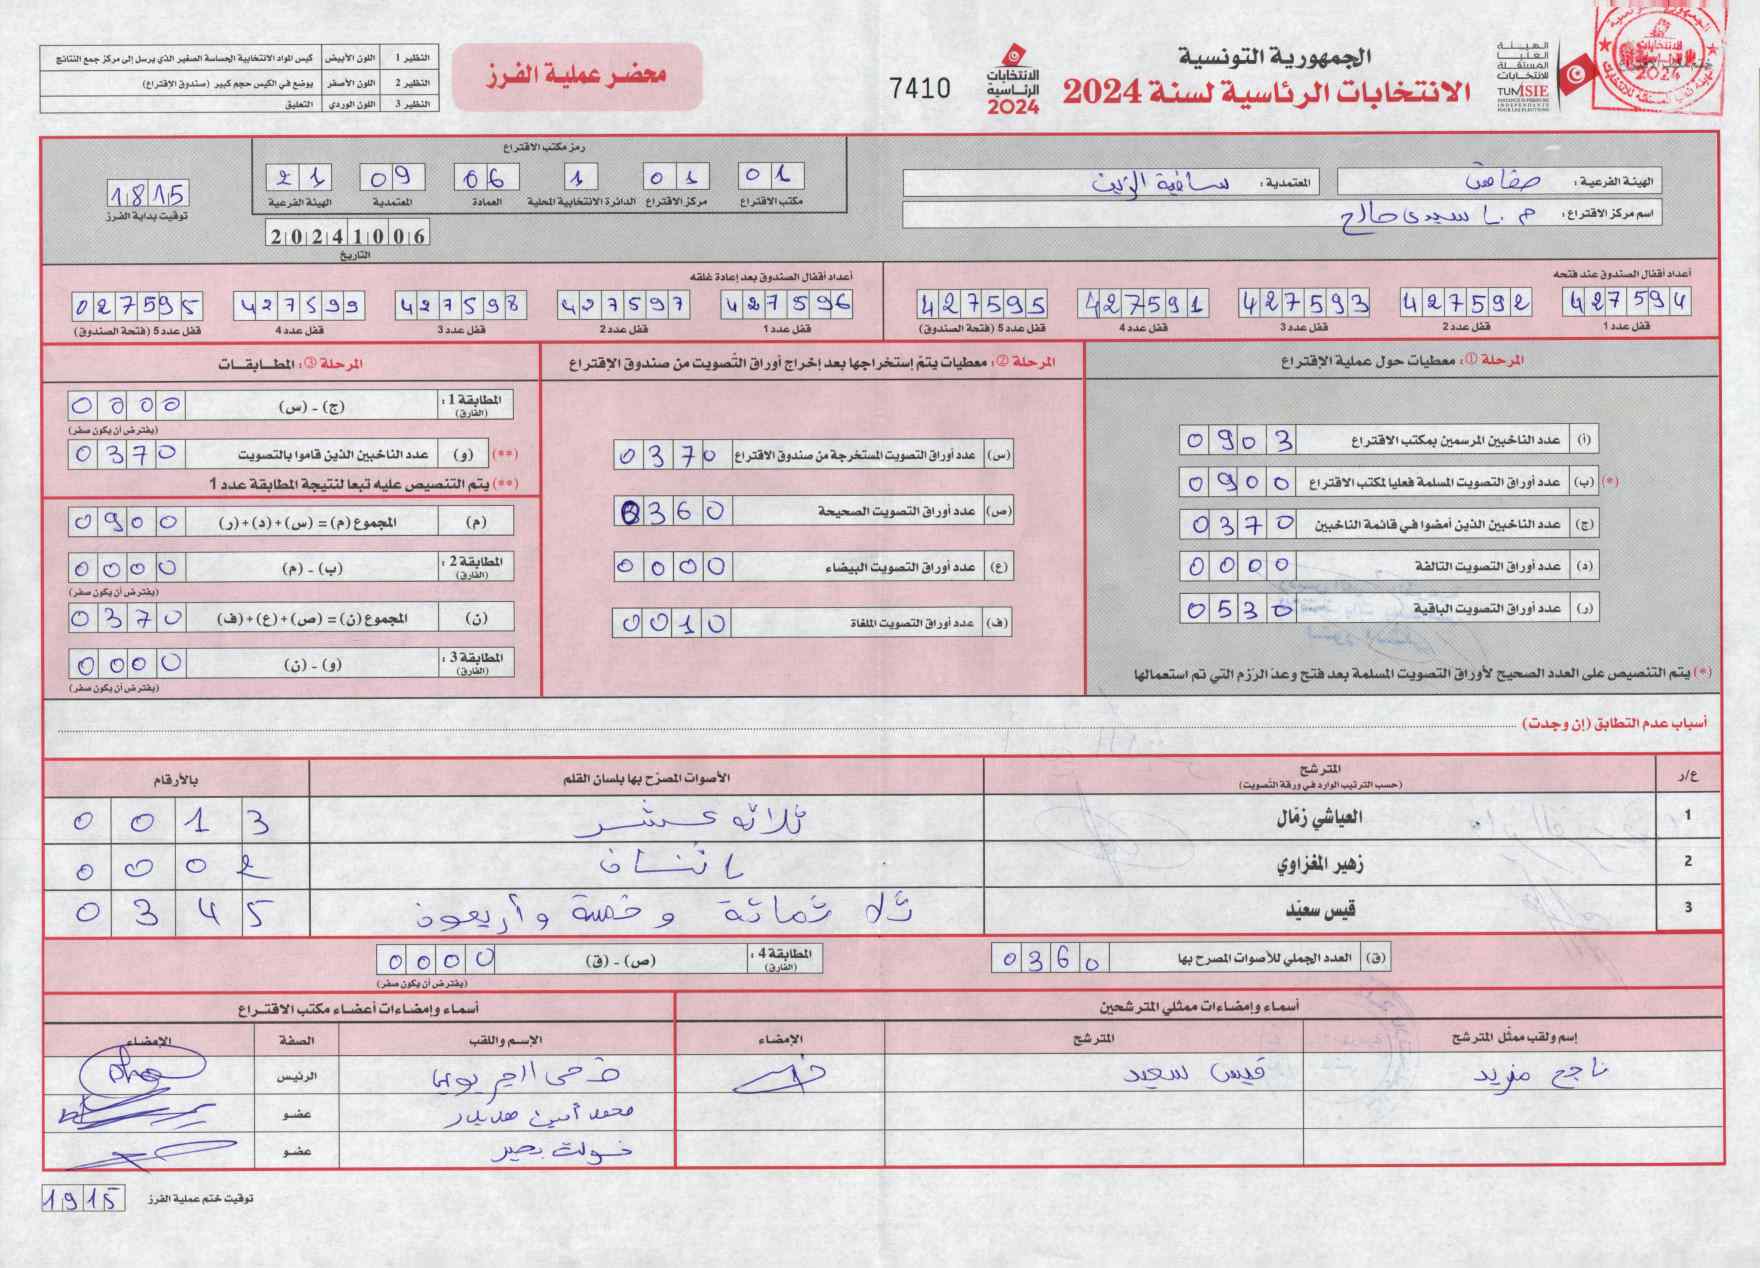 الجمهورية التونسية
الانتخابات الرئاسية لسنة 2024
الهيئة العليا المستقلة للانتخابات
TUNISIE
INSTANCE SUPERIEURE INDEPENDANTE POUR LES ELECTIONS
الانتخابات الرئاسية 2024
7410
محضر عملية الفرز
النظير 1 اللون الأبيض كيس المواد الانتخابية الحساسة الصغير الذي يرسل إلى مركز جمع النتائج
النظير 2 اللون الأصفر يوضع في الكيس حجم كبير (صندوق الإقتراع)
النظير 3 اللون الوردي التعليق
الهيئة الفرعية : صفاقس
المعتمدية : ساقية الزيت
اسم مركز الاقتراع : م . ا سيدي صالح
رمز مكتب الاقتراع
01 01 1 06 09 21
مكتب الاقتراع مركز الاقتراع الدائرة الانتخابية المحلية العمادة المعتمدية الهيئة الفرعية
20241006
التاريخ
1815
توقيت بداية الفرز
أعداد أقفال الصندوق عند فتحه
427594 427592 427593 427591 427595
قفل عدد 1 قفل عدد 2 قفل عدد 3 قفل عدد 4 قفل عدد 5 (فتحة الصندوق)
أعداد أقفال الصندوق بعد إعادة غلقه
427596 427597 427598 427599 027595
قفل عدد 1 قفل عدد 2 قفل عدد 3 قفل عدد 4 قفل عدد 5 (فتحة الصندوق)
المرحلة ①: معطيات حول عملية الإقتراع
(أ) عدد الناخبين المرسمين بمكتب الاقتراع 0903
(*) (ب) عدد أوراق التصويت المسلمة فعليا لمكتب الاقتراع 0900
(ج) عدد الناخبين الذين أمضوا في قائمة الناخبين 0370
(د) عدد أوراق التصويت التالفة 0000
(ر) عدد أوراق التصويت الباقية 0530
(*) يتم التنصيص على العدد الصحيح لأوراق التصويت المسلمة بعد فتح وعدّ الرّزم التي تم استعمالها
المرحلة ②: معطيات يتمّ إستخراجها بعد إخراج أوراق التّصويت من صندوق الإقتراع
(س) عدد أوراق التصويت المستخرجة من صندوق الاقتراع 0370
(ص) عدد أوراق التصويت الصحيحة 0360
(ع) عدد أوراق التصويت البيضاء 0000
(ف) عدد أوراق التصويت الملغاة 0010
المرحلة ③: المطابقات
المطابقة 1 : (الفارق) (ج) - (س) 0000
(يفترض أن يكون صفر)
(**) (و) عدد الناخبين الذين قاموا بالتصويت 0370
(**) يتم التنصيص عليه تبعا لنتيجة المطابقة عدد 1
(م) المجموع (م) = (س) + (د) + (ر) 0900
المطابقة 2 : (الفارق) (ب) - (م) 0000
(يفترض أن يكون صفر)
(ن) المجموع (ن) = (ص) + (ع) + (ف) 0370
المطابقة 3 : (الفارق) (و) - (ن) 0000
(يفترض أن يكون صفر)
أسباب عدم التطابق (إن وجدت)
ع/ر المترشح (حسب الترتيب الوارد في ورقة التصويت) الأصوات المصرّح بها بلسان القلم بالأرقام
1 العياشي زمّال ثلاثة عشر 0013
2 زهير المغزاوي اثنان 0002
3 قيس سعيّد ثلاثمائة وخمسة وأربعون 0345
(ق) العدد الجملي للأصوات المصرح بها 0360
المطابقة 4 : (الفارق) (ص) - (ق) 0000
(يفترض أن يكون صفر)
أسماء وإمضاءات ممثلي المترشحين
إسم ولقب ممثّل المترشح المترشح الإمضاء
ناجح مزيد قيس سعيد
أسماء وإمضاءات أعضاء مكتب الاقتراع
الإسم واللقب الصفة الإمضاء
الرئيس
محمد أمين عضو
خولة عضو
توقيت ختم عملية الفرز 1915